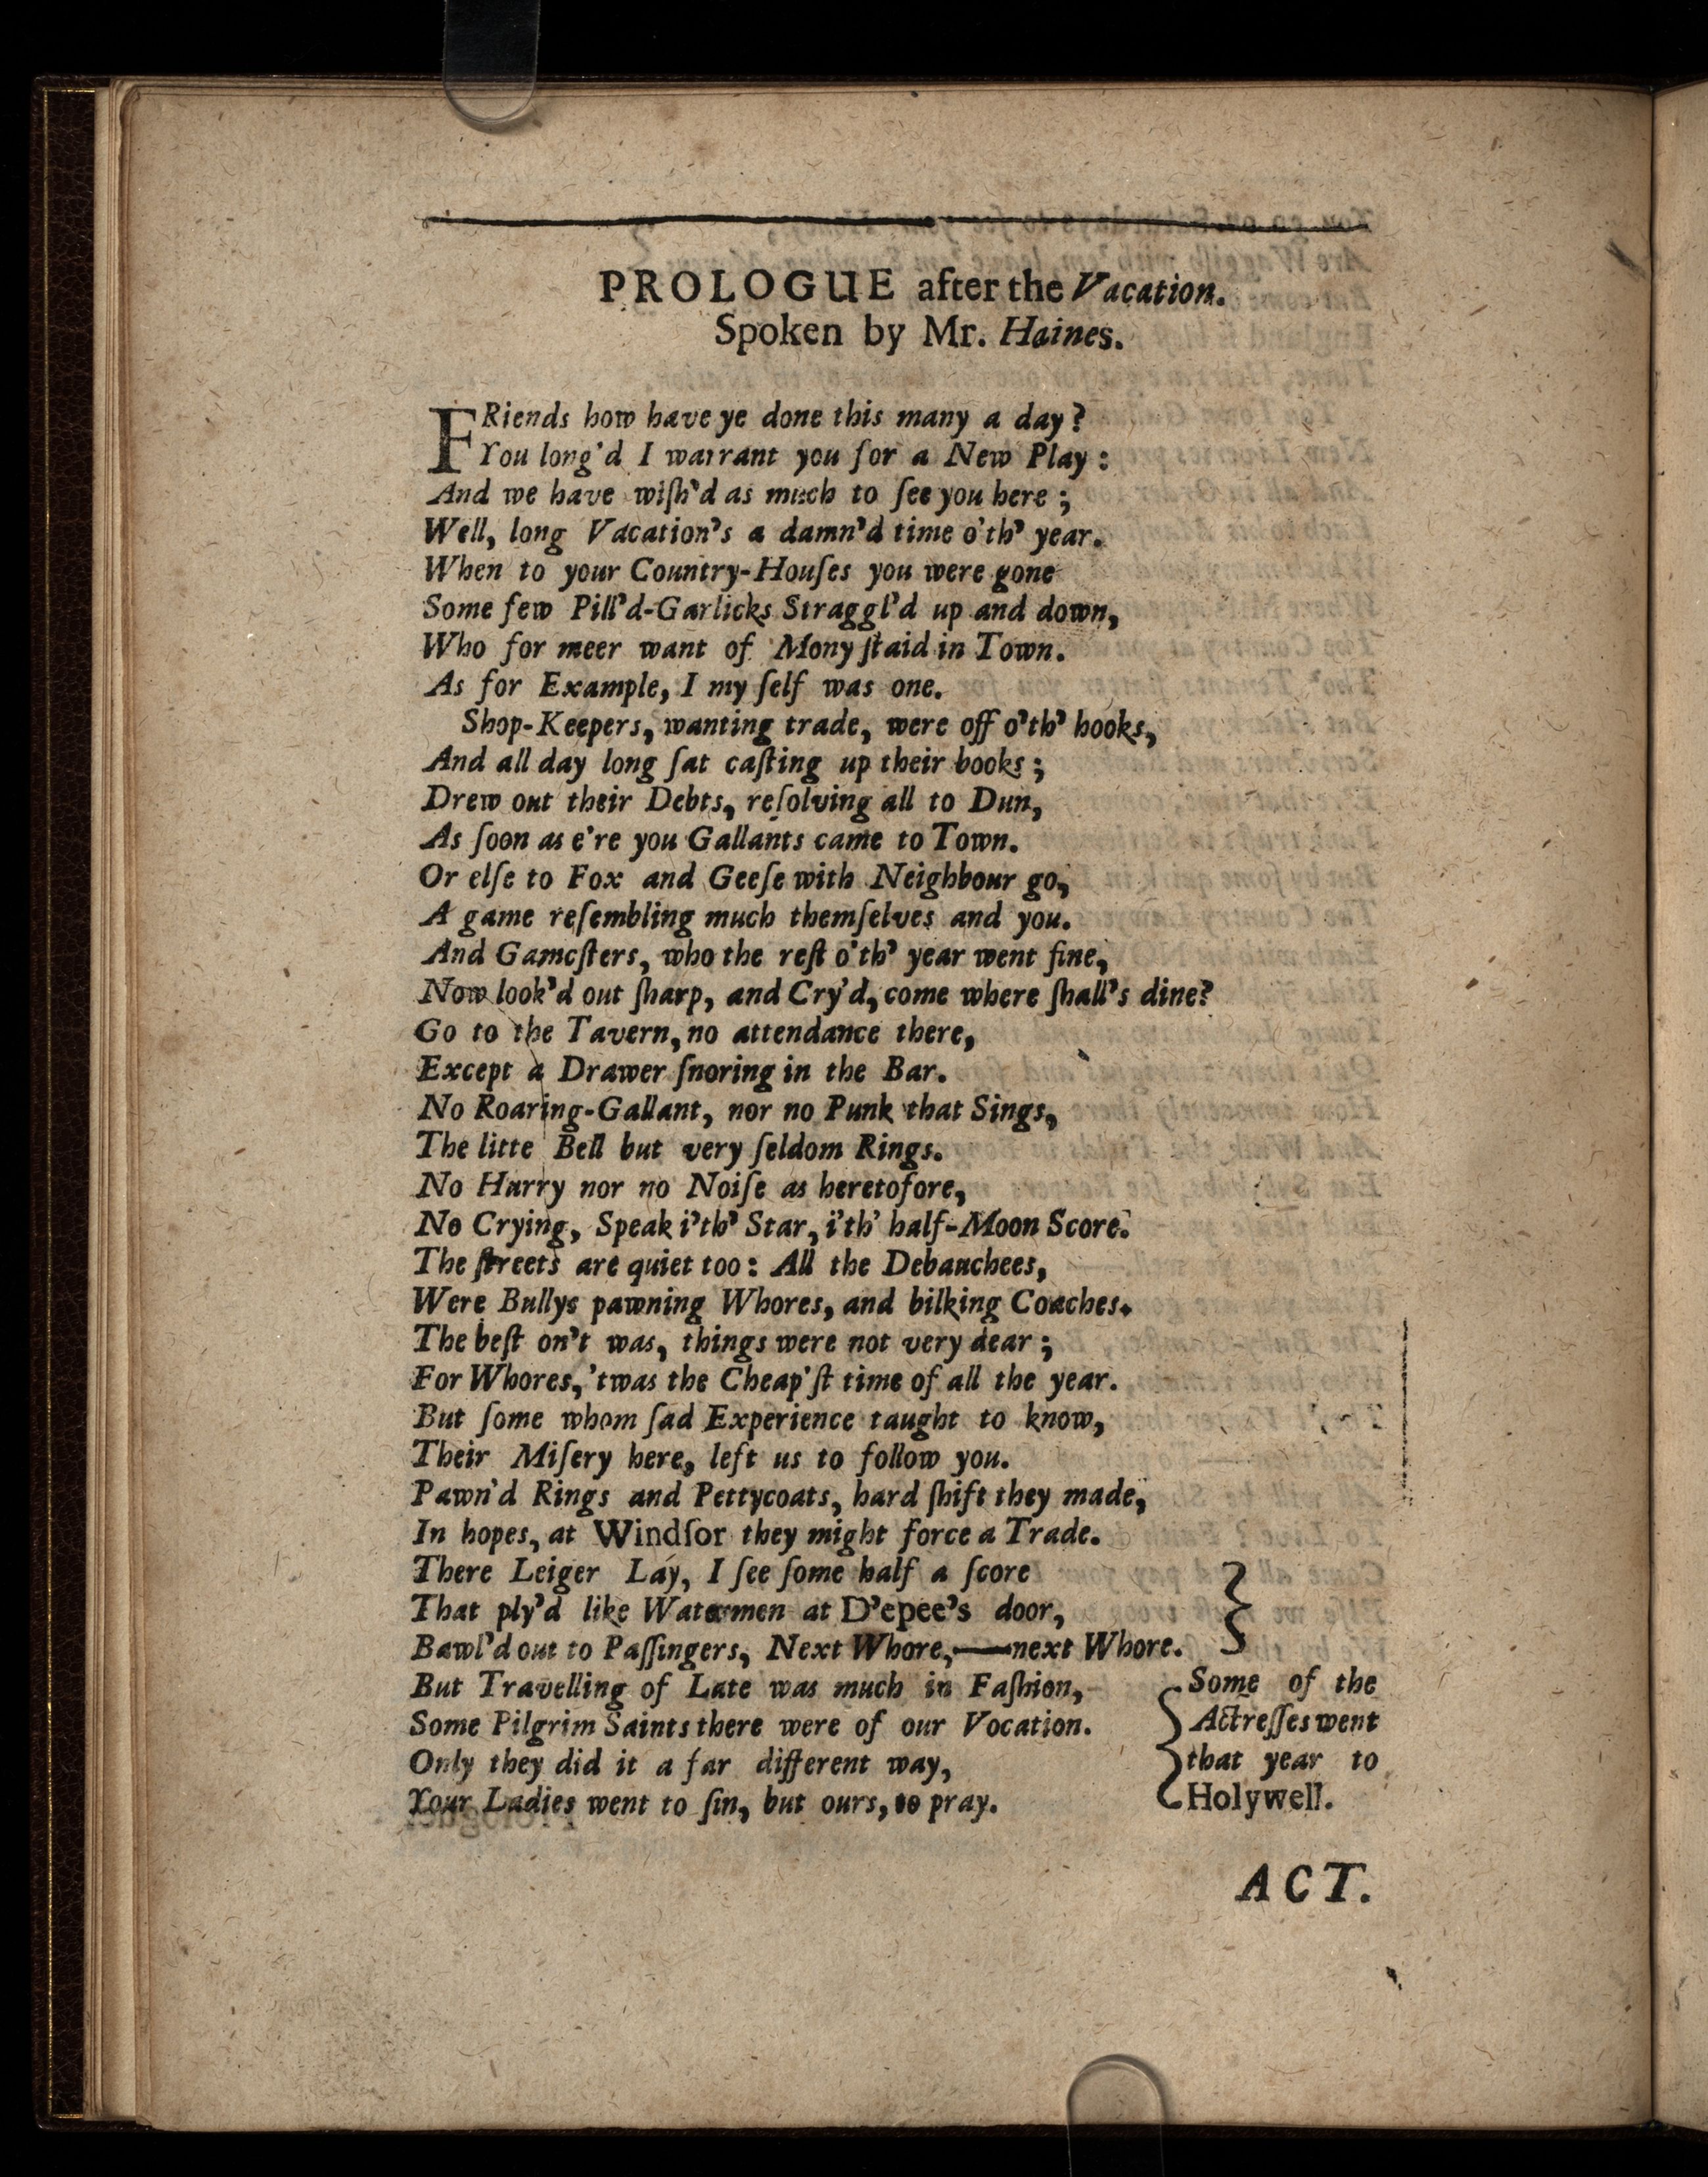 PROLOGUE after the Vacation.
Spoken by Mr. Haines.
FRiends how have ye done this many a day?
You long'd I warrant you for a New Play:
And we have wiſh'd as much to ſee you here;
Well, long Vacation's a damn'd time o'th' year.
When to your Country-Houſes you were gone
Some few Pill'd-Garlicks Straggl'd up and down,
Who for meer want of Mony ſtaid in Town.
As for Example, I my ſelf was one.
Shop-Keepers, wanting trade, were off o'th' hooks,
And all day long ſat caſting up their books;
Drew out their Debts, reſolving all to Dun,
As ſoon as e're you Gallants came to Town.
Or elſe to Fox and Geeſe with Neighbour go,
A game reſembling much themſelves and you.
And Gameſters, who the reſt o'th' year went fine,
Now look'd out ſharp, and Cry'd, come where ſhall's dine?
Go to the Tavern, no attendance there,
Except a Drawer ſnoring in the Bar.
No Roaring-Gallant, nor no Punk that Sings,
The litte Bell but very ſeldom Rings.
No Hurry nor no Noiſe as heretofore,
No Crying, Speak i'th' Star, i'th' half-Moon Score.
The ſtreets are quiet too: All the Debauchees,
Were Bullys pawning Whores, and bilking Coaches.
The beſt on't was, things were not very dear;
For Whores, 'twas the Cheap'ſt time of all the year.
But ſome whom ſad Experience taught to know,
Their Miſery here, left us to follow you.
Pawn'd Rings and Pettycoats, hard ſhift they made,
In hopes, at Windſor they might force a Trade.
There Leiger Lay, I ſee ſome half a ſcore
That ply'd like Watermen at D'epee's door,
Bawl'd out to Paſſingers, Next Whore,—next Whore.
But Travelling of Late was much in Faſhion,
Some Pilgrim Saints there were of our Vocation.
Only they did it a far different way,
Your Ladies went to ſin, but ours, to pray.
Some of the
Actreſſes went
that year to
Holywell.
ACT.